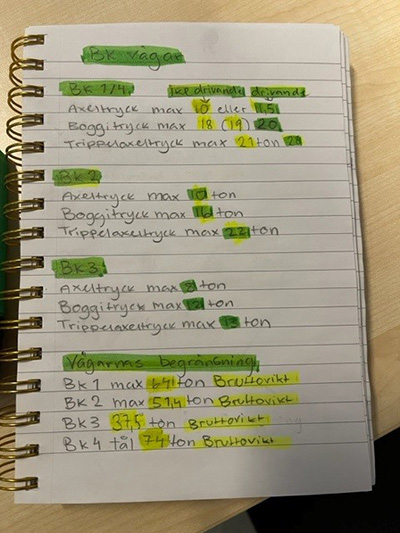 Bk vägar
Bk 1/4 icke drivande drivande
Axeltryck max 10 eller 11,5
Boggitryck max 18 (19) 20
Trippelaxeltryck max 21 ton 24
Bk 2
Axeltryck max 10 ton
Boggitryck max 16 ton
Trippelaxeltryck max 22 ton
Bk3
Axeltryck max 8 ton
Boggitryck max 12 ton
Trippelaxeltryck max 13 ton
Vägarnas begränsning
Bk 1 max 64 ton Bruttovikt
Bk 2 max 51,4 ton Bruttovikt
Bk3 37,5 ton Bruttovikt
Bk 4 tål 74 ton Bruttovikt